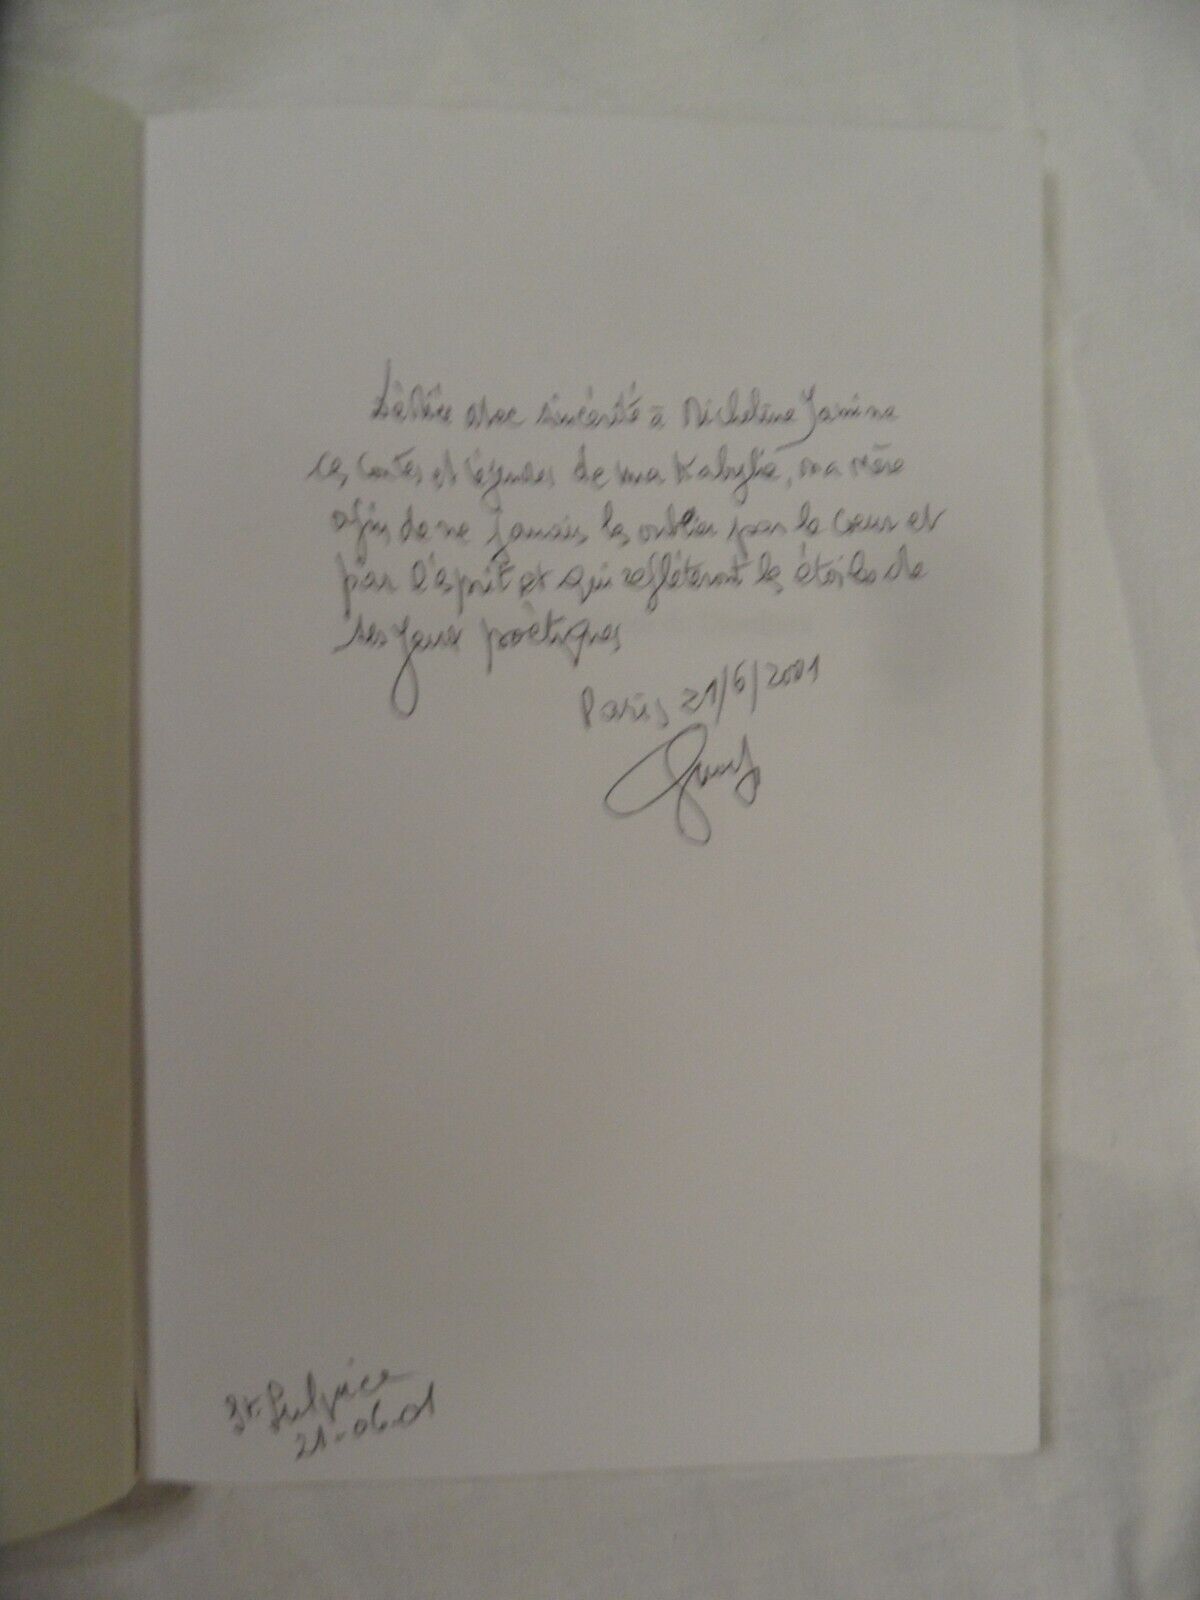 Dédiée avec sincérité à Micheline Janina
ces contes et légendes de ma Kabylie, ma mère
afin de ne jamais les oublier par le cœur et
par l'esprit et qui reflèteront les étoiles de
ses yeux poètiques
Paris 21/6/2001
St. Sulpice
21-06-01